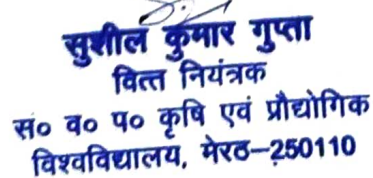 सुशील कुमार गुप्ता
वित्त नियंत्रक
सं० व० प० कृषि एवं प्रौद्योगिक
विश्वविद्यालय, मेरठ–250110